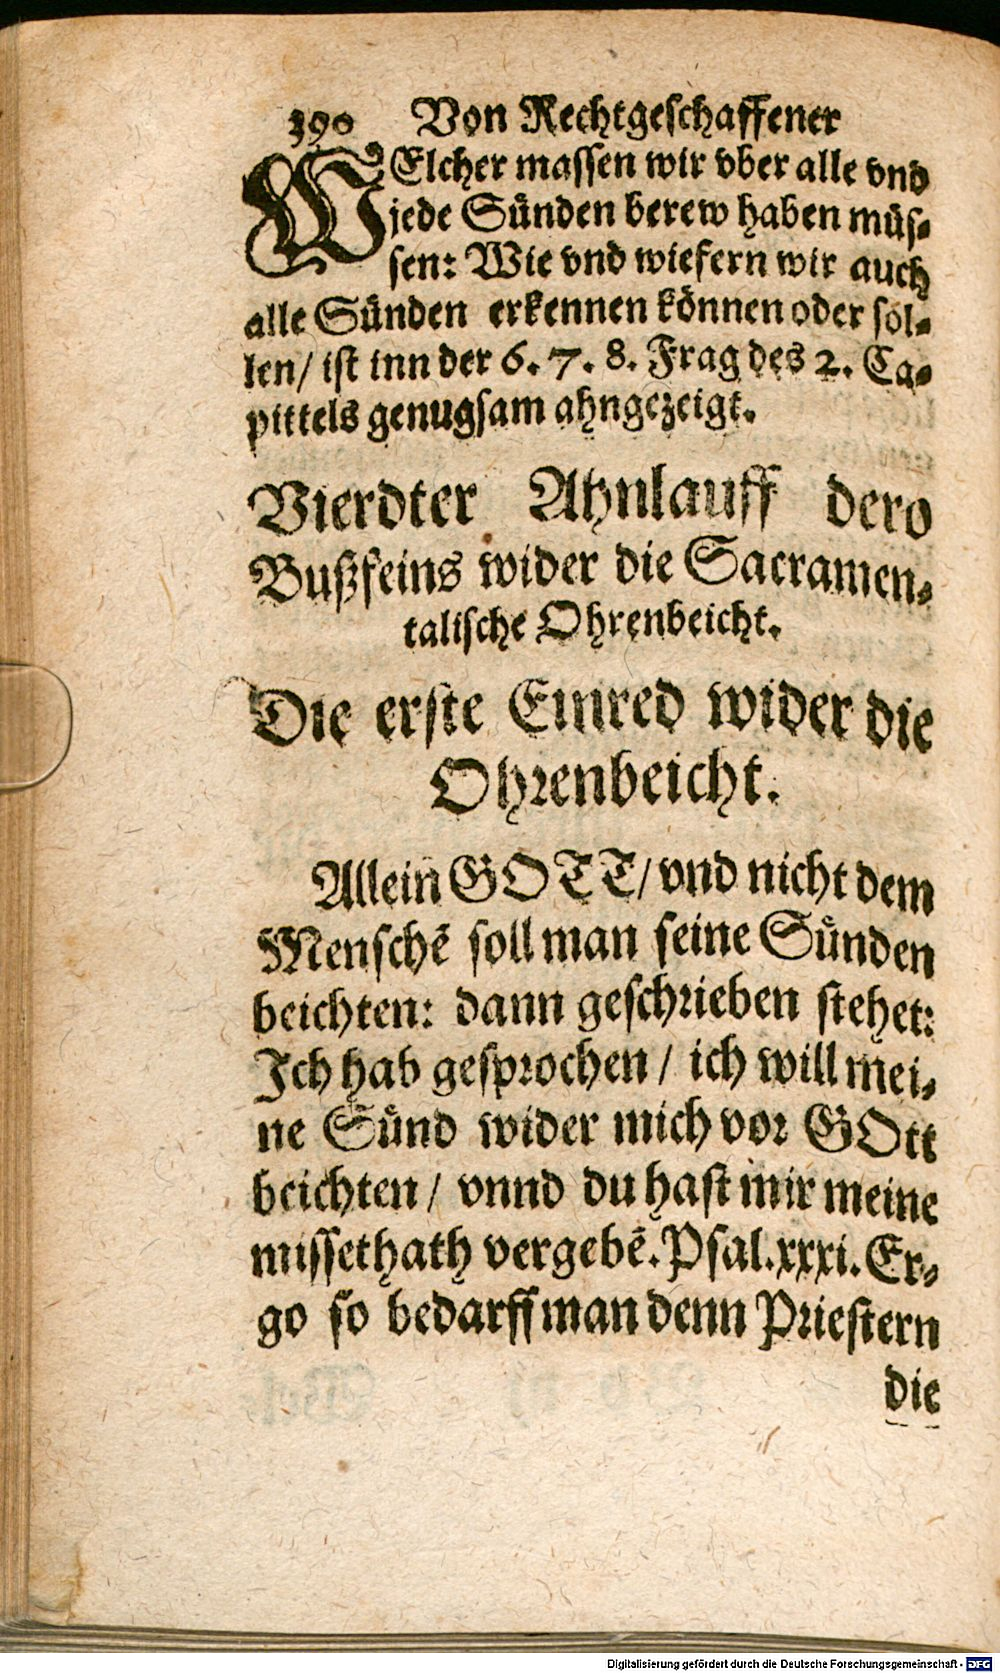 390 Von Rechtgeschaffener
WElcher massen wir vber alle vnd
jede Sünden berew haben müs-
sen: Wie vnd wiefern wir auch
alle Sünden erkennen können oder söl-
len/ ist inn der 6. 7. 8. Frag des 2. Ca-
pittels genugsam ahngezeigt.
Vierdter Ahnlauff dero
Bußfeins wider die Sacramen-
talische Ohrenbeicht.
Die erste Einred wider die
Ohrenbeicht.
Allein GOTT/ vnd nicht dem
Menschẽ soll man seine Sünden
beichten: dann geschrieben stehet:
Ich hab gesprochen / ich will mei-
ne Sünd wider mich vor GOtt
beichten / vnnd du hast mir meine
missethath vergebẽ. Psal. xxxi. Er-
go so bedarff man denn Priestern
die
Digitalisierung gefördert durch die Deutsche Forschungsgemeinschaft - DFG